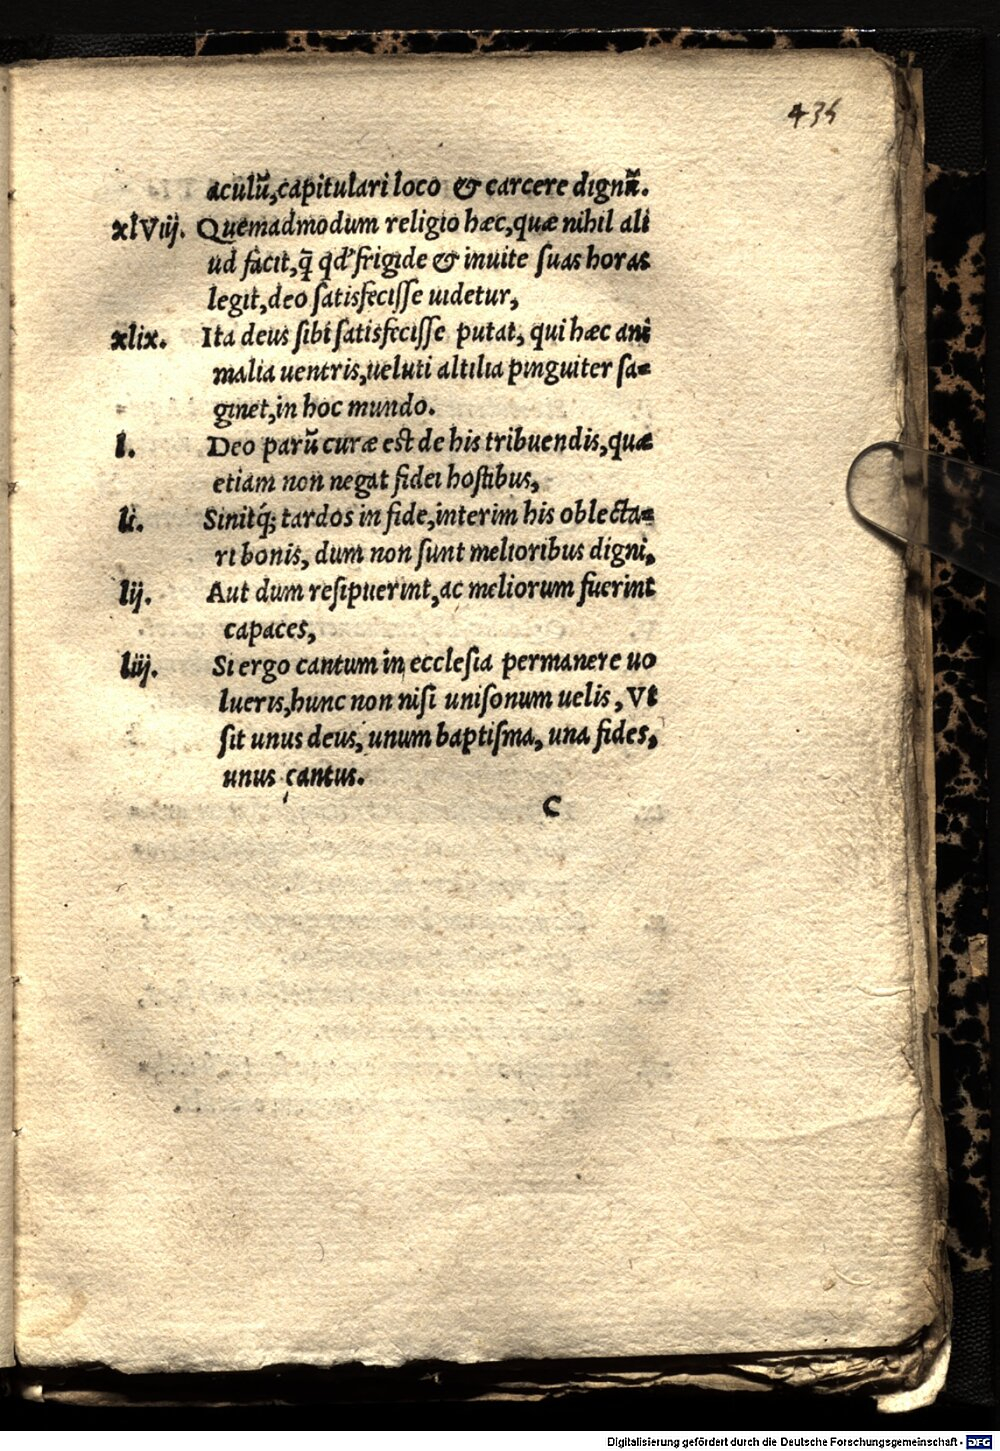 435
aculũ, capitulari loco & carcere dignũ.
xlViij. Quemadmodum religio hæc, quæ nihil ali
ud facit, q̃ qd' frigide & inuite ſuas horas
legit, deo ſatisfeciſſe uidetur,
xlix. Ita deus ſibi ſatisfeciſſe putat, qui hæc ani
malia uentris, ueluti altilia pinguiter ſa⸗
ginet, in hoc mundo.
l. Deo parũ curæ est de his tribuendis, quæ
etiam non negat fidei hostibus,
li. Sinitq́; tardos in fide, interim his oblecta⸗
ri bonis, dum non ſunt melioribus digni,
lij. Aut dum reſipuerint, ac meliorum fuerint
capaces,
liij. Si ergo cantum in eccleſia permanere uo
lueris, hunc non niſi uniſonum uelis, Vt
ſit unus deus, unum baptiſma, una fides,
unus cantus.
C
Digitalisierung gefördert durch die Deutsche Forschungsgemeinschaft - DFG